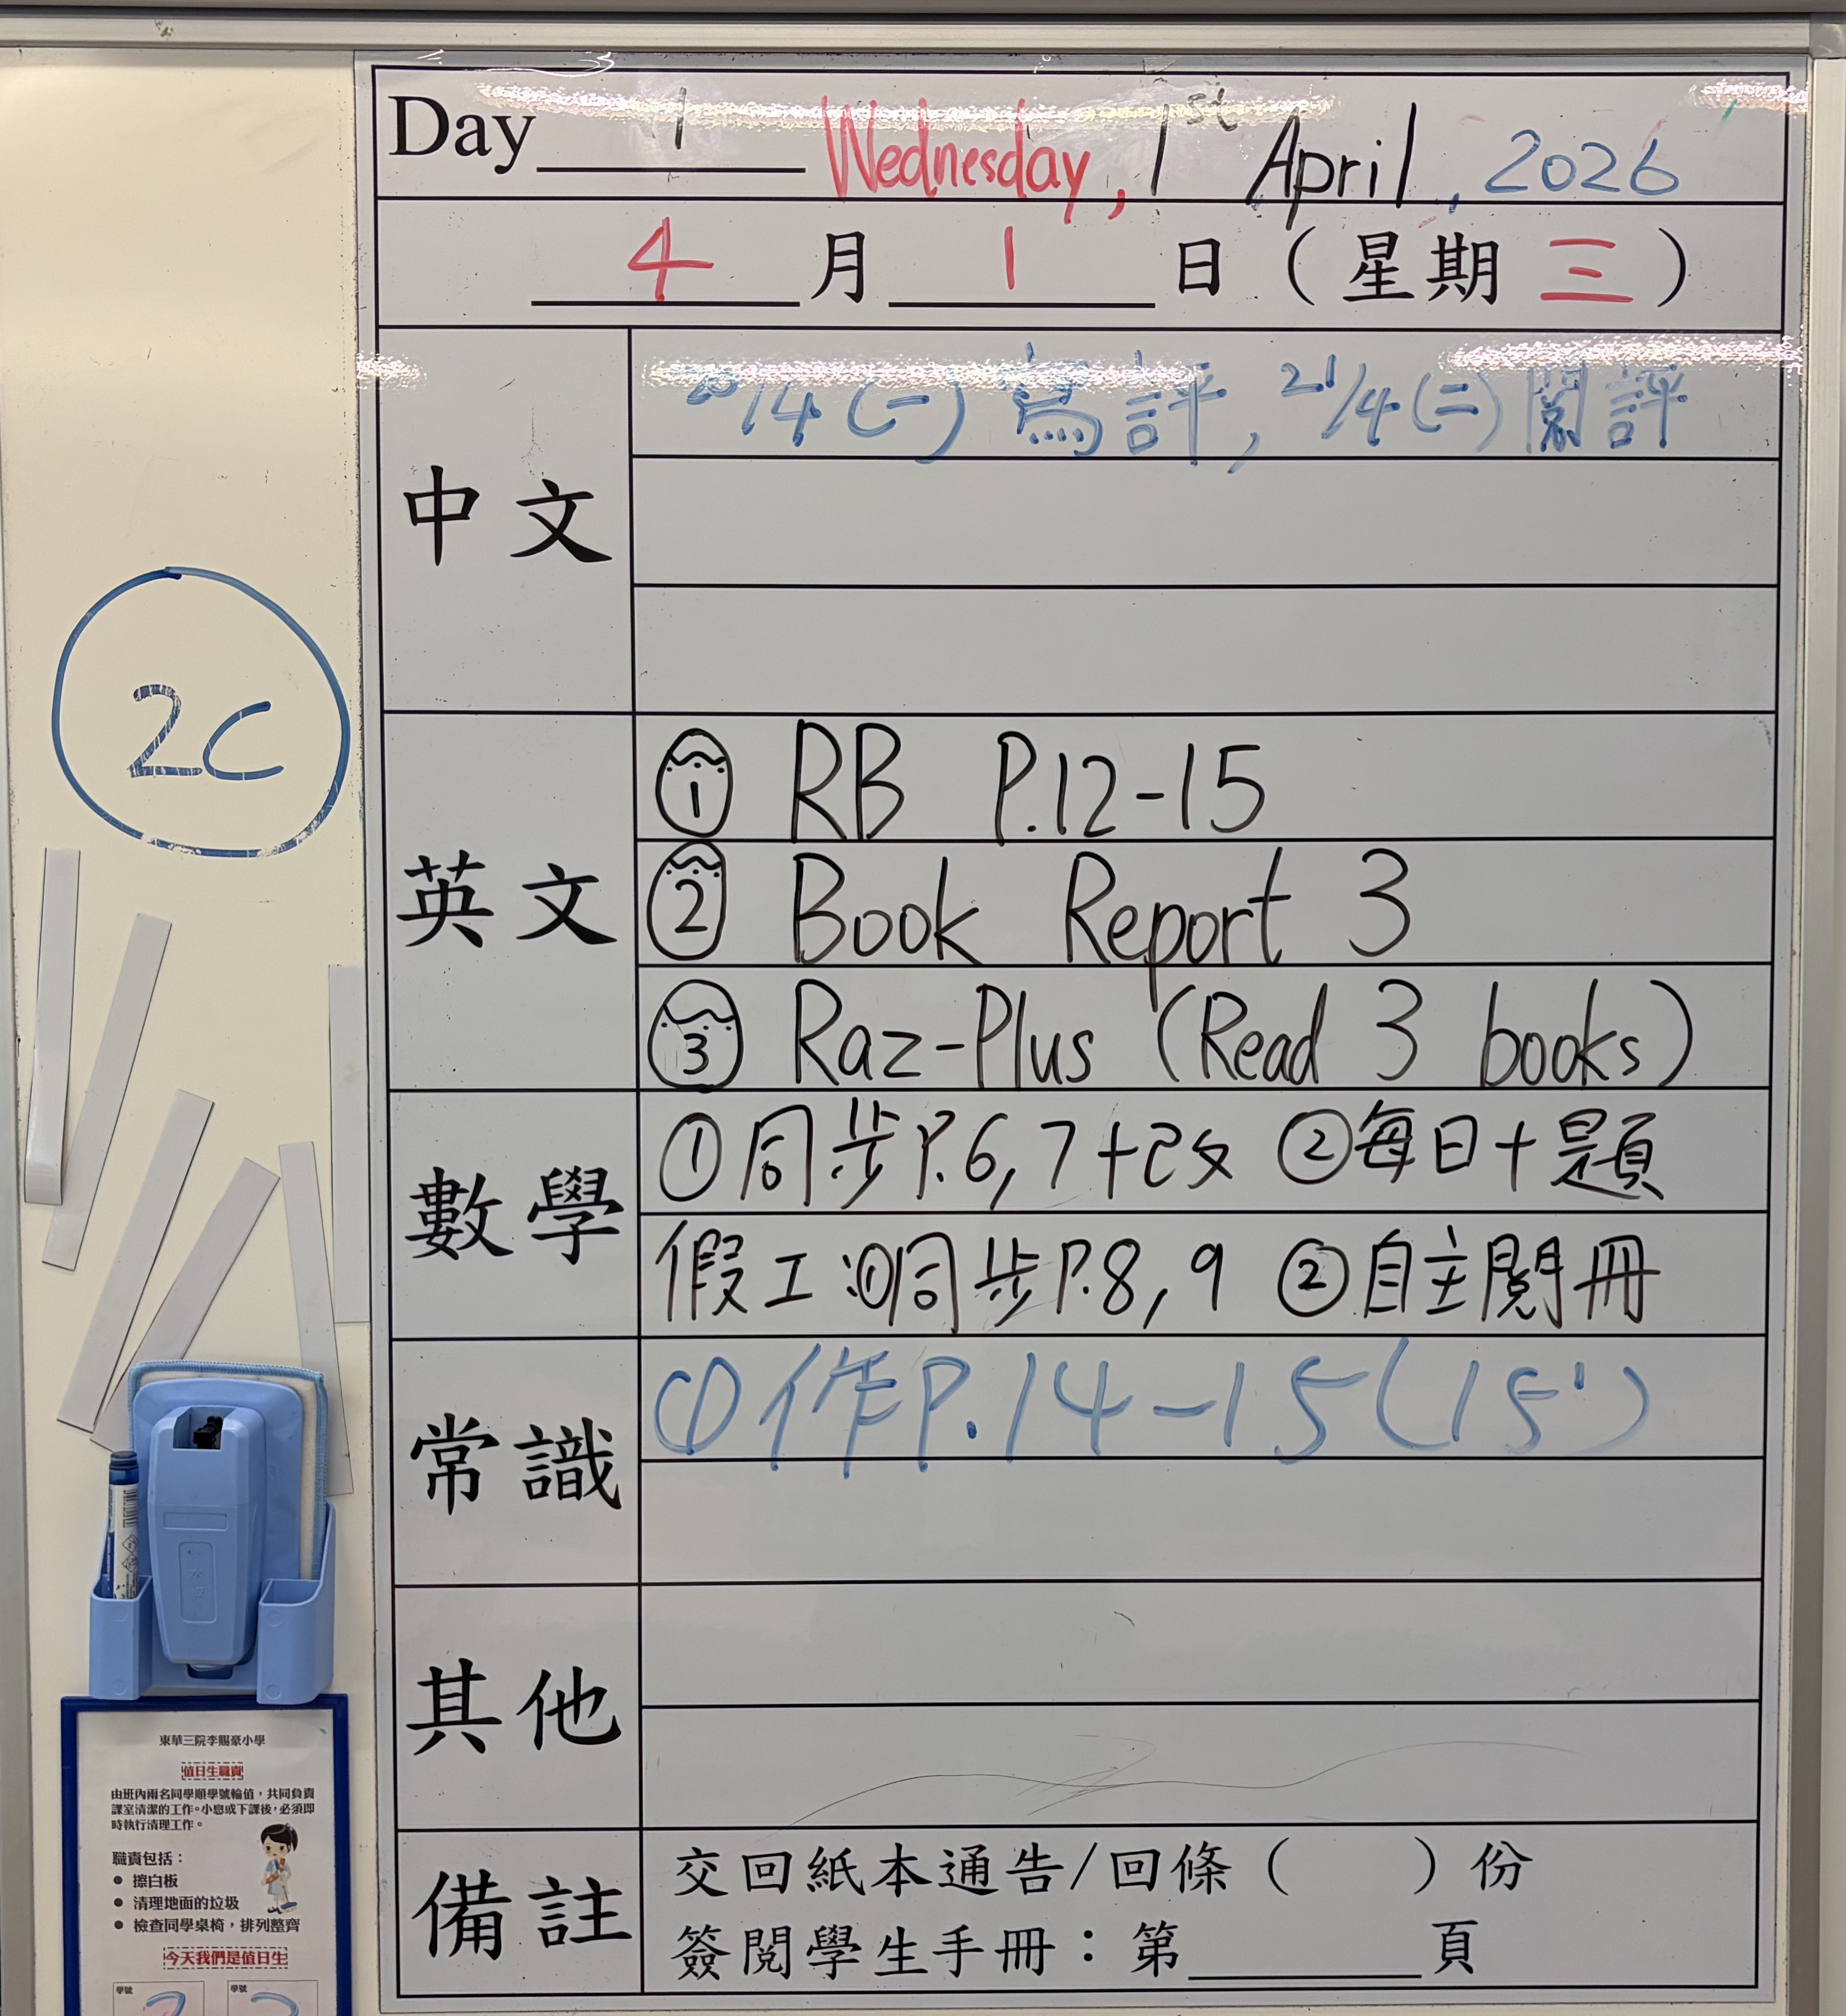 Day 1 Wednesday, 1st April, 2026
4 月 1 日 (星期 三)
中文
20/4 (一) 寫評, 21/4 (二) 閱評
2C
英文
① RB P.12-15
② Book Report 3
③ Raz-Plus (Read 3 books)
數學
① 同步P.6, 7 + 已改 ② 每日十題
假工: ① 同步P.8, 9 ② 自主閱冊
常識
① 作P.14-15 (15')
其他
備註
交回紙本通告/回條 ( ) 份
簽閱學生手冊:第______頁
東華三院李賜豪小學
值日生職責
由班內兩名同學順學號輪值,共同負責
課室清潔的工作。小息或下課後,必須即
時執行清理工作。
職責包括:
• 擦白板
• 清理地面的垃圾
• 檢查同學桌椅,排列整齊
今天我們是值日生
學號 學號